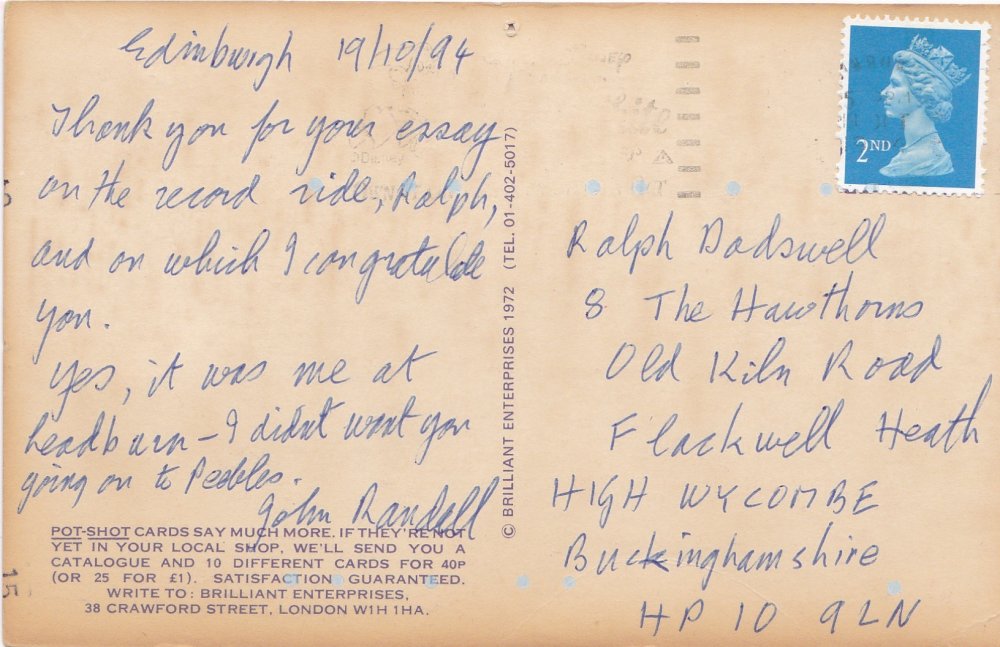 Edinburgh 19/10/94
Thank you for your essay
on the record ride, Ralph,
and on which I congratulate
you.
Yes, it was me at
Leadburn – I didn't want you
going on to Peebles.
John Randall
POT-SHOT CARDS SAY MUCH MORE. IF THEY'RE NOT
YET IN YOUR LOCAL SHOP, WE'LL SEND YOU A
CATALOGUE AND 10 DIFFERENT CARDS FOR 40P
(OR 25 FOR £1). SATISFACTION GUARANTEED.
WRITE TO: BRILLIANT ENTERPRISES,
38 CRAWFORD STREET, LONDON W1H 1HA.
© BRILLIANT ENTERPRISES 1972 (TEL. 01-402-5017)
2ND
Ralph Dadswell
8 The Hawthorns
Old Kiln Road
Flackwell Heath
HIGH WYCOMBE
Buckinghamshire
HP10 9LN
©Disney
15